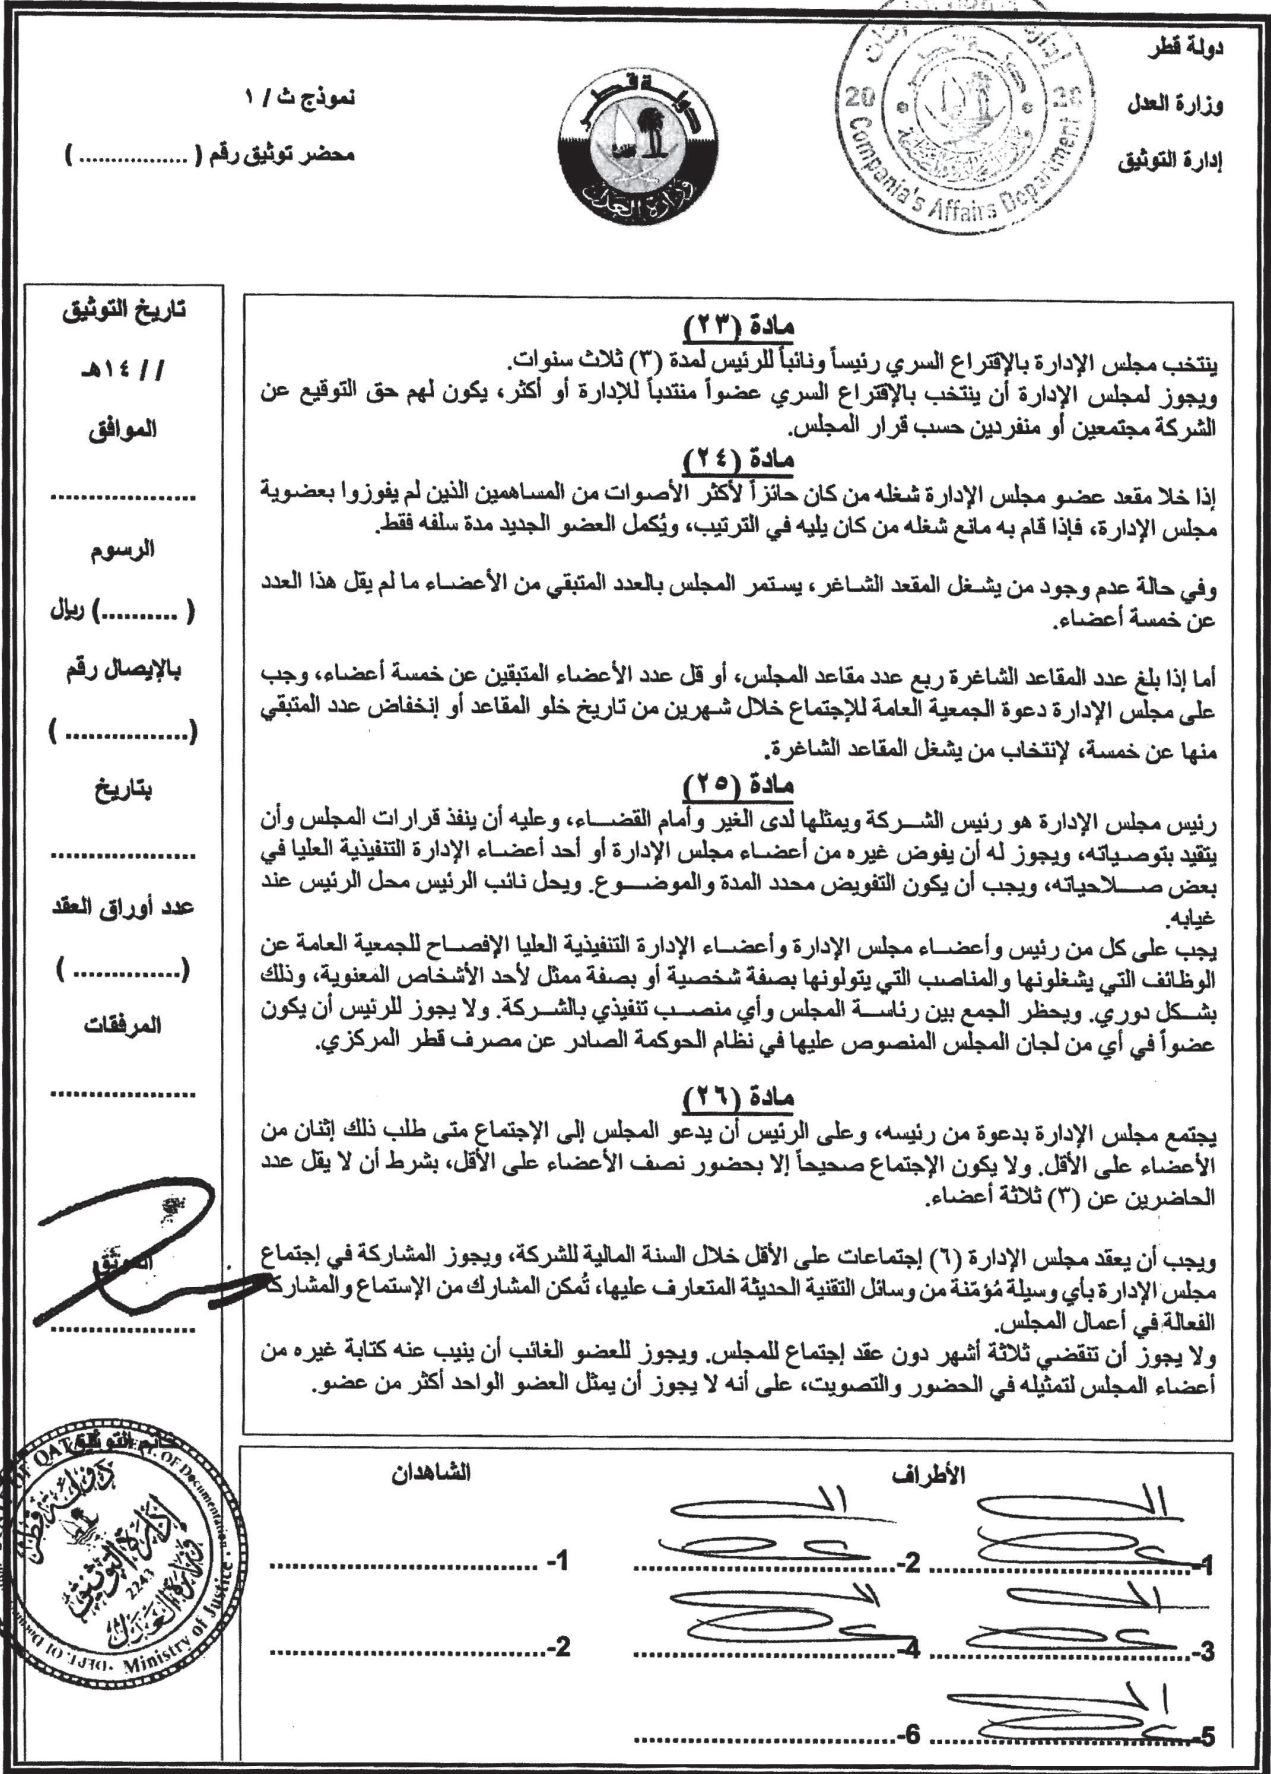 دولة قطر
وزارة العدل
إدارة التوثيق
20 26
Compania's Affairs Department
دولة قطر
وزارة العدل
نموذج ث / ١
محضر توثيق رقم ( ................ )
مادة (٢٣)
ينتخب مجلس الإدارة بالإقتراع السري رئيساً ونائباً للرئيس لمدة (٣) ثلاث سنوات.
ويجوز لمجلس الإدارة أن ينتخب بالإقتراع السري عضواً منتدباً للإدارة أو أكثر، يكون لهم حق التوقيع عن
الشركة مجتمعين أو منفردين حسب قرار المجلس.
مادة (٢٤)
إذا خلا مقعد عضو مجلس الإدارة شغله من كان حائزاً لأكثر الأصوات من المساهمين الذين لم يفوزوا بعضوية
مجلس الإدارة، فإذا قام به مانع شغله من كان يليه في الترتيب، ويُكمل العضو الجديد مدة سلفه فقط.
وفي حالة عدم وجود من يشغل المقعد الشاغر، يستمر المجلس بالعدد المتبقي من الأعضاء ما لم يقل هذا العدد
عن خمسة أعضاء.
أما إذا بلغ عدد المقاعد الشاغرة ربع عدد مقاعد المجلس، أو قل عدد الأعضاء المتبقين عن خمسة أعضاء، وجب
على مجلس الإدارة دعوة الجمعية العامة للإجتماع خلال شهرين من تاريخ خلو المقاعد أو إنخفاض عدد المتبقي
منها عن خمسة، لإنتخاب من يشغل المقاعد الشاغرة.
مادة (٢٥)
رئيس مجلس الإدارة هو رئيس الشركة ويمثلها لدى الغير وأمام القضاء، وعليه أن ينفذ قرارات المجلس وأن
يتقيد بتوصياته، ويجوز له أن يفوض غيره من أعضاء مجلس الإدارة أو أحد أعضاء الإدارة التنفيذية العليا في
بعض صلاحياته، ويجب أن يكون التفويض محدد المدة والموضوع. ويحل نائب الرئيس محل الرئيس عند
غيابه.
يجب على كل من رئيس وأعضاء مجلس الإدارة وأعضاء الإدارة التنفيذية العليا الإفصاح للجمعية العامة عن
الوظائف التي يشغلونها والمناصب التي يتولونها بصفة شخصية أو بصفة ممثل لأحد الأشخاص المعنوية، وذلك
بشكل دوري. ويحظر الجمع بين رئاسة المجلس وأي منصب تنفيذي بالشركة. ولا يجوز للرئيس أن يكون
عضواً في أي من لجان المجلس المنصوص عليها في نظام الحوكمة الصادر عن مصرف قطر المركزي.
مادة (٢٦)
يجتمع مجلس الإدارة بدعوة من رئيسه، وعلى الرئيس أن يدعو المجلس إلى الإجتماع متى طلب ذلك إثنان من
الأعضاء على الأقل. ولا يكون الإجتماع صحيحاً إلا بحضور نصف الأعضاء على الأقل، بشرط أن لا يقل عدد
الحاضرين عن (٣) ثلاثة أعضاء.
ويجب أن يعقد مجلس الإدارة (٦) إجتماعات على الأقل خلال السنة المالية للشركة، ويجوز المشاركة في إجتماع
مجلس الإدارة بأي وسيلة مُؤمّنة من وسائل التقنية الحديثة المتعارف عليها، تُمكن المشارك من الإستماع والمشاركة
الفعالة في أعمال المجلس.
ولا يجوز أن تنقضي ثلاثة أشهر دون عقد إجتماع للمجلس. ويجوز للعضو الغائب أن ينيب عنه كتابة غيره من
أعضاء المجلس لتمثيله في الحضور والتصويت، على أنه لا يجوز أن يمثل العضو الواحد أكثر من عضو.
تاريخ التوثيق
/ / ١٤هـ
الموافق
....................
الرسوم
( ..........) ريال
بالإيصال رقم
(................ )
بتاريخ
....................
عدد أوراق العقد
(.............. )
المرفقات
....................
الموثق
....................
خاتم التوثيق
دولة قطر
إدارة التوثيق
2243
وزارة العدل
Ministry of Justice
الأطراف
الشاهدان
1-.................................... 2-....................................
1- ....................................
3-.................................... 4-....................................
2-....................................
5-.................................... 6-....................................